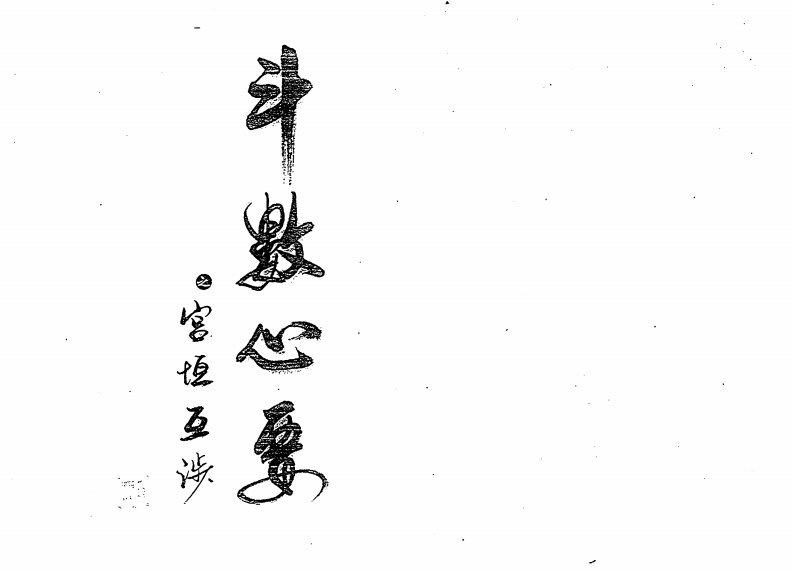 斗數心要
之宮垣互涉